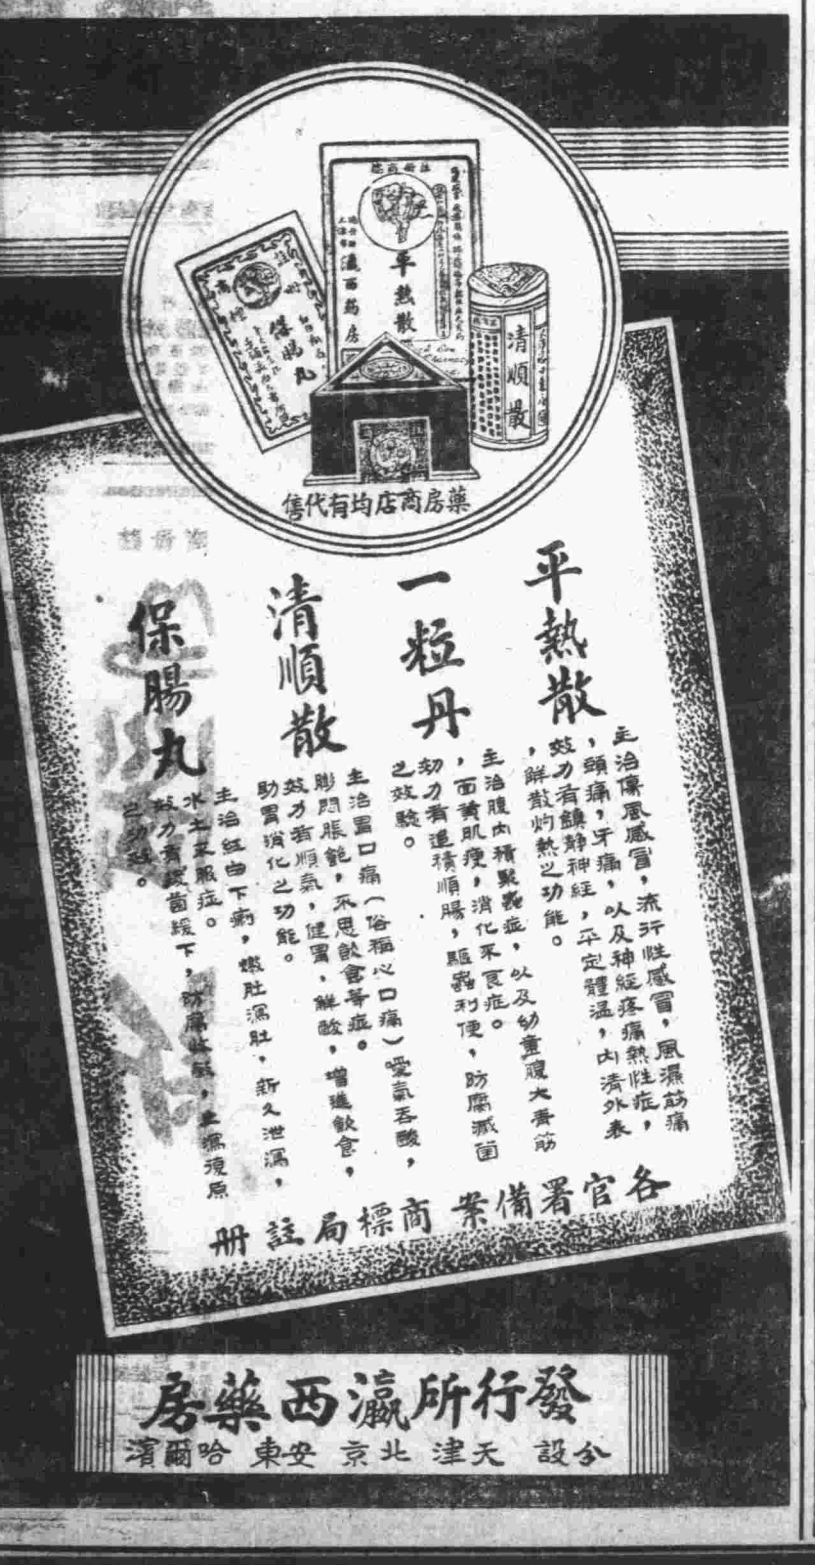 藥房商店均有代售
平熱散
主治傷風感冒，流行性感冒，風濕筋痛
，頭痛，牙痛，以及神經疼痛熱性症，
效力有鎮靜神經，平定體温，内清外表
，解散灼熱之功能。
一粒丹
主治腹内積聚蟲症，以及幼童腹大青筋
，面黄肌瘦，消化不良症。
効力有進積順腸，驅蟲利便，防腐滅菌
之效驗。
清順散
主治胃口痛（俗稱心口痛）噯氣吞酸，
膨悶脹飽，不思飲食等症。
效力有順氣，健胃，解酸，增進飲食，
助胃消化之功能。
保腸丸
主治紅白下痢，㿃肚瀉肚，新久泄瀉，
水土不服症。
效力有殺菌緩下，防腐收歛，止瀉復原
之功效。
各官署備案 商標局註册
發行所瀛西藥房
分設 天津 北京 安東 哈爾濱
平熱散
瀛西藥房
保腸丸
清順散